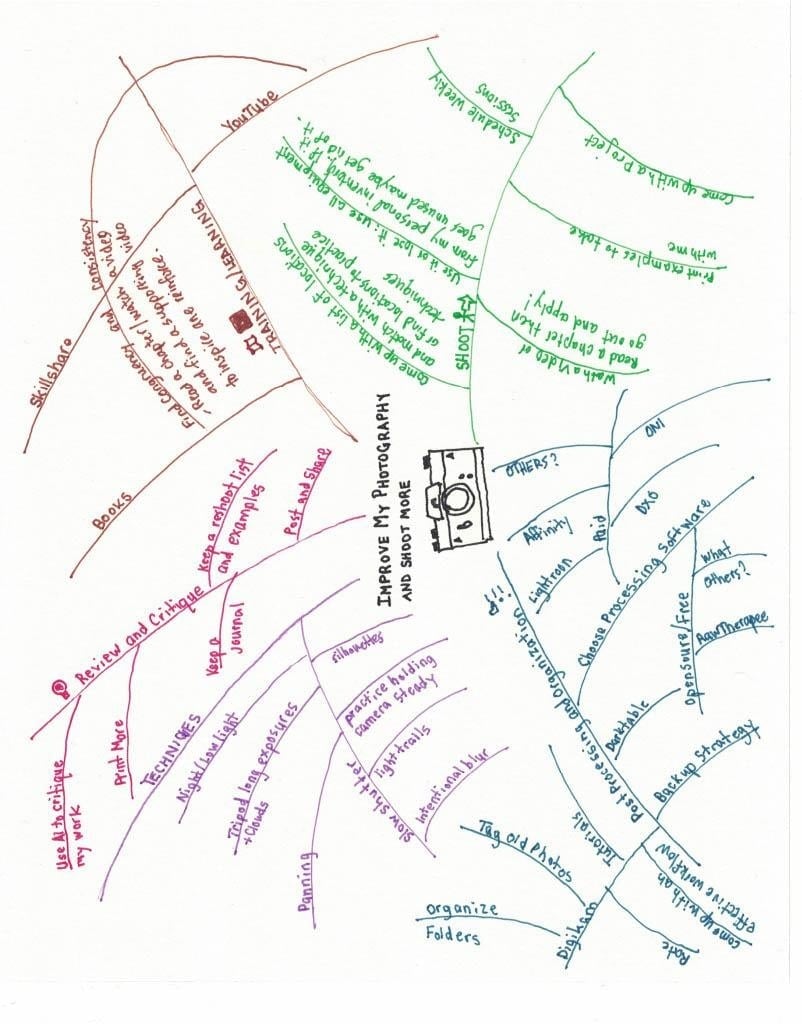 IMPROVE MY PHOTOGRAPHY
AND SHOOT MORE
TRAINING/LEARNING
YouTube
Skillshare
Books
Find Congruency and consistency
- Read a chapter/watch a video
and find a supporting video
to inspire and reinforce.
SHOOT
Schedule Weekly
Sessions
Use it or lose it: use all equipment
from my personal inventory. If it
goes unused maybe get rid of it.
Come up with a list of locations
and match with a technique
or find locations to practice
techniques
Come up with a project
Print examples to take
with me
Watch a Video or
Read a chapter then
go out and apply!
Post Processing and Organization
!!!
Choose Processing Software
Paid
OTHERS?
Affinity
Lightroom
ON1
DXO
OpenSoure/Free
What
Others?
RawTherapee
Darktable
Backup Strategy
Come up with an
effective workflow
Digikam
Tutorials
Tag Old photos
organize
Folders
Rate
TECHNIQUES
Night/Low light
Tripod long exposures
+Clouds
Slow shutter
silhouettes
practice holding
camera steady
light-trails
Intentional blur
Panning
Review and Critique
Keep a reshoot list
and examples
Post and Share
Keep a
Journal
Print More
Use AI to critique
my work